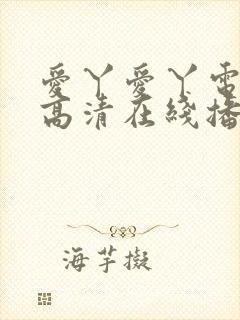 愛丫愛丫電
高清在綫播
海芋擬